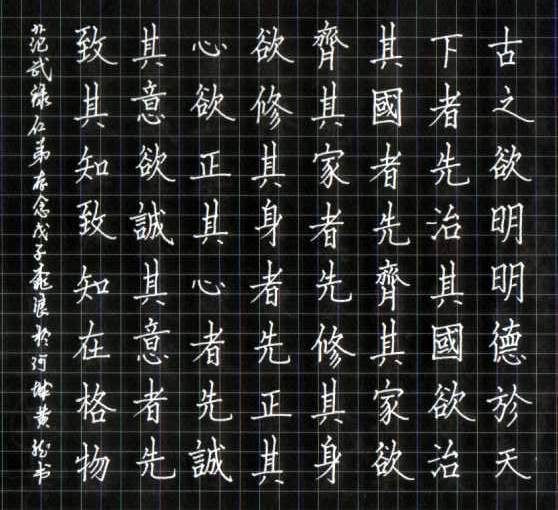 古之欲明明德於天
下者先治其國欲治
其國者先齊其家欲
齊其家者先修其身
欲修其身者先正其
心欲正其心者先誠
其意欲誠其意者先
致其知致知在格物
范武 仁弟存念戊子 浪於河 黄 书